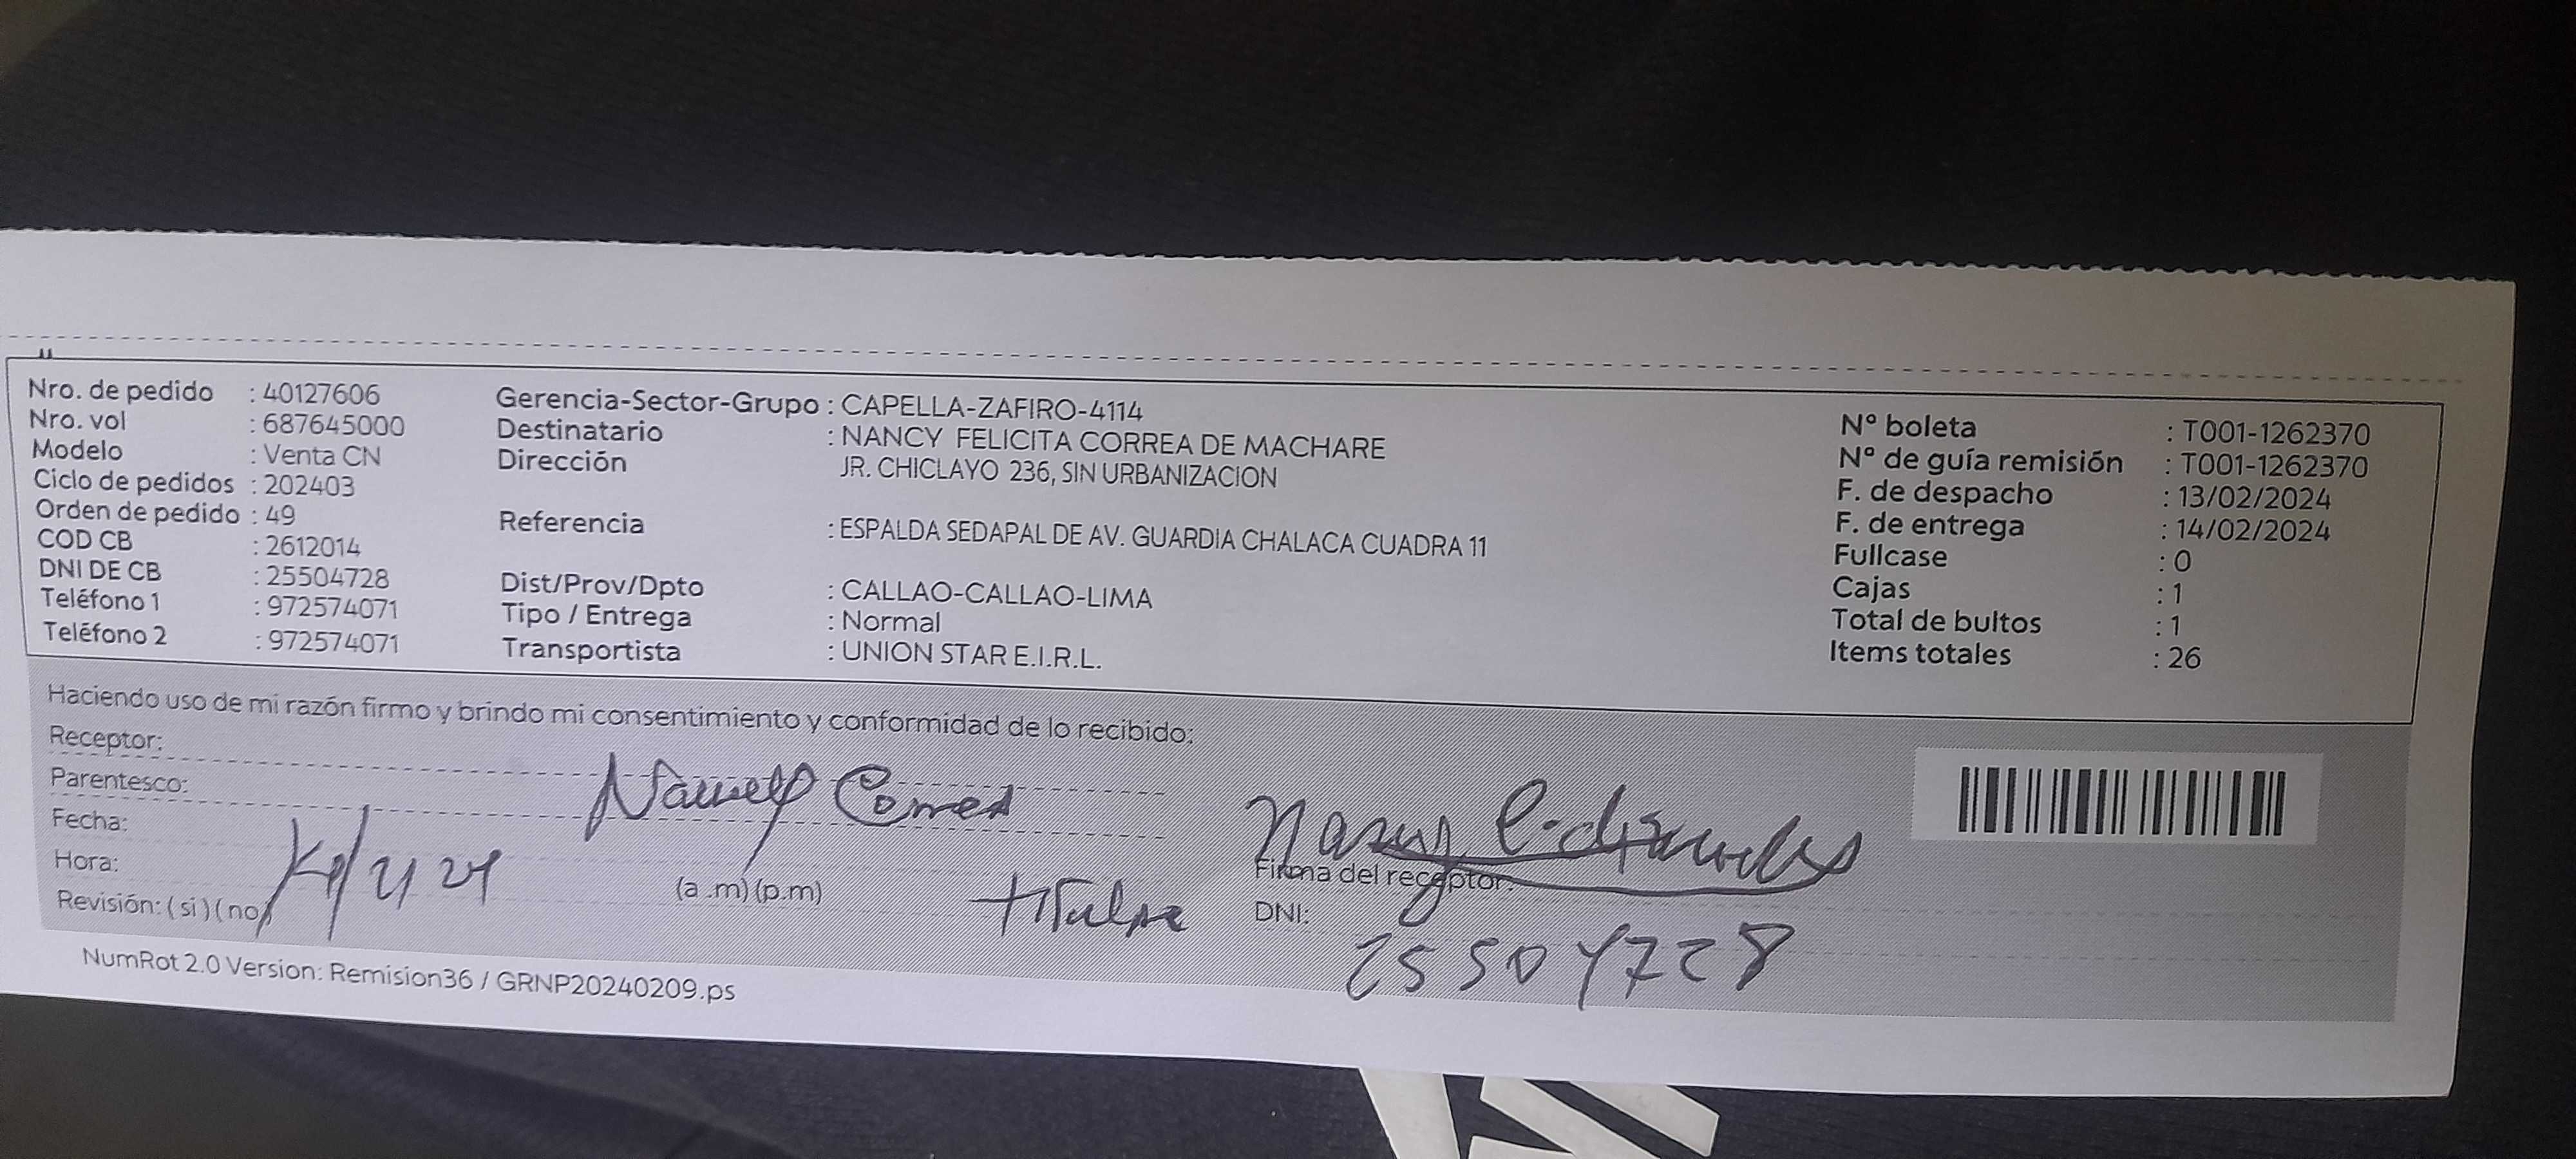 Nro. de pedido : 40127606
Nro. vol : 687645000
Modelo : Venta CN
Ciclo de pedidos : 202403
Orden de pedido : 49
COD CB : 2612014
DNI DE CB : 25504728
Teléfono 1 : 972574071
Teléfono 2 : 972574071
Gerencia-Sector-Grupo : CAPELLA-ZAFIRO-4114
Destinatario : NANCY FELICITA CORREA DE MACHARE
Dirección JR. CHICLAYO 236, SIN URBANIZACION
Referencia : ESPALDA SEDAPAL DE AV. GUARDIA CHALACA CUADRA 11
Dist/Prov/Dpto : CALLAO-CALLAO-LIMA
Tipo / Entrega : Normal
Transportista : UNION STAR E.I.R.L.
Nº boleta : T001-1262370
Nº de guía remisión : T001-1262370
F. de despacho : 13/02/2024
F. de entrega : 14/02/2024
Fullcase : 0
Cajas : 1
Total de bultos : 1
Items totales : 26
Haciendo uso de mi razón firmo y brindo mi consentimiento y conformidad de lo recibido:
Receptor:
Parentesco:
Fecha:
Hora: (a .m) (p.m)
Revisión: ( si ) ( no)
Correa
Titular
Nancy
Firma del receptor:
DNI: 25504728
NumRot 2.0 Version: Remision36 / GRNP20240209.ps